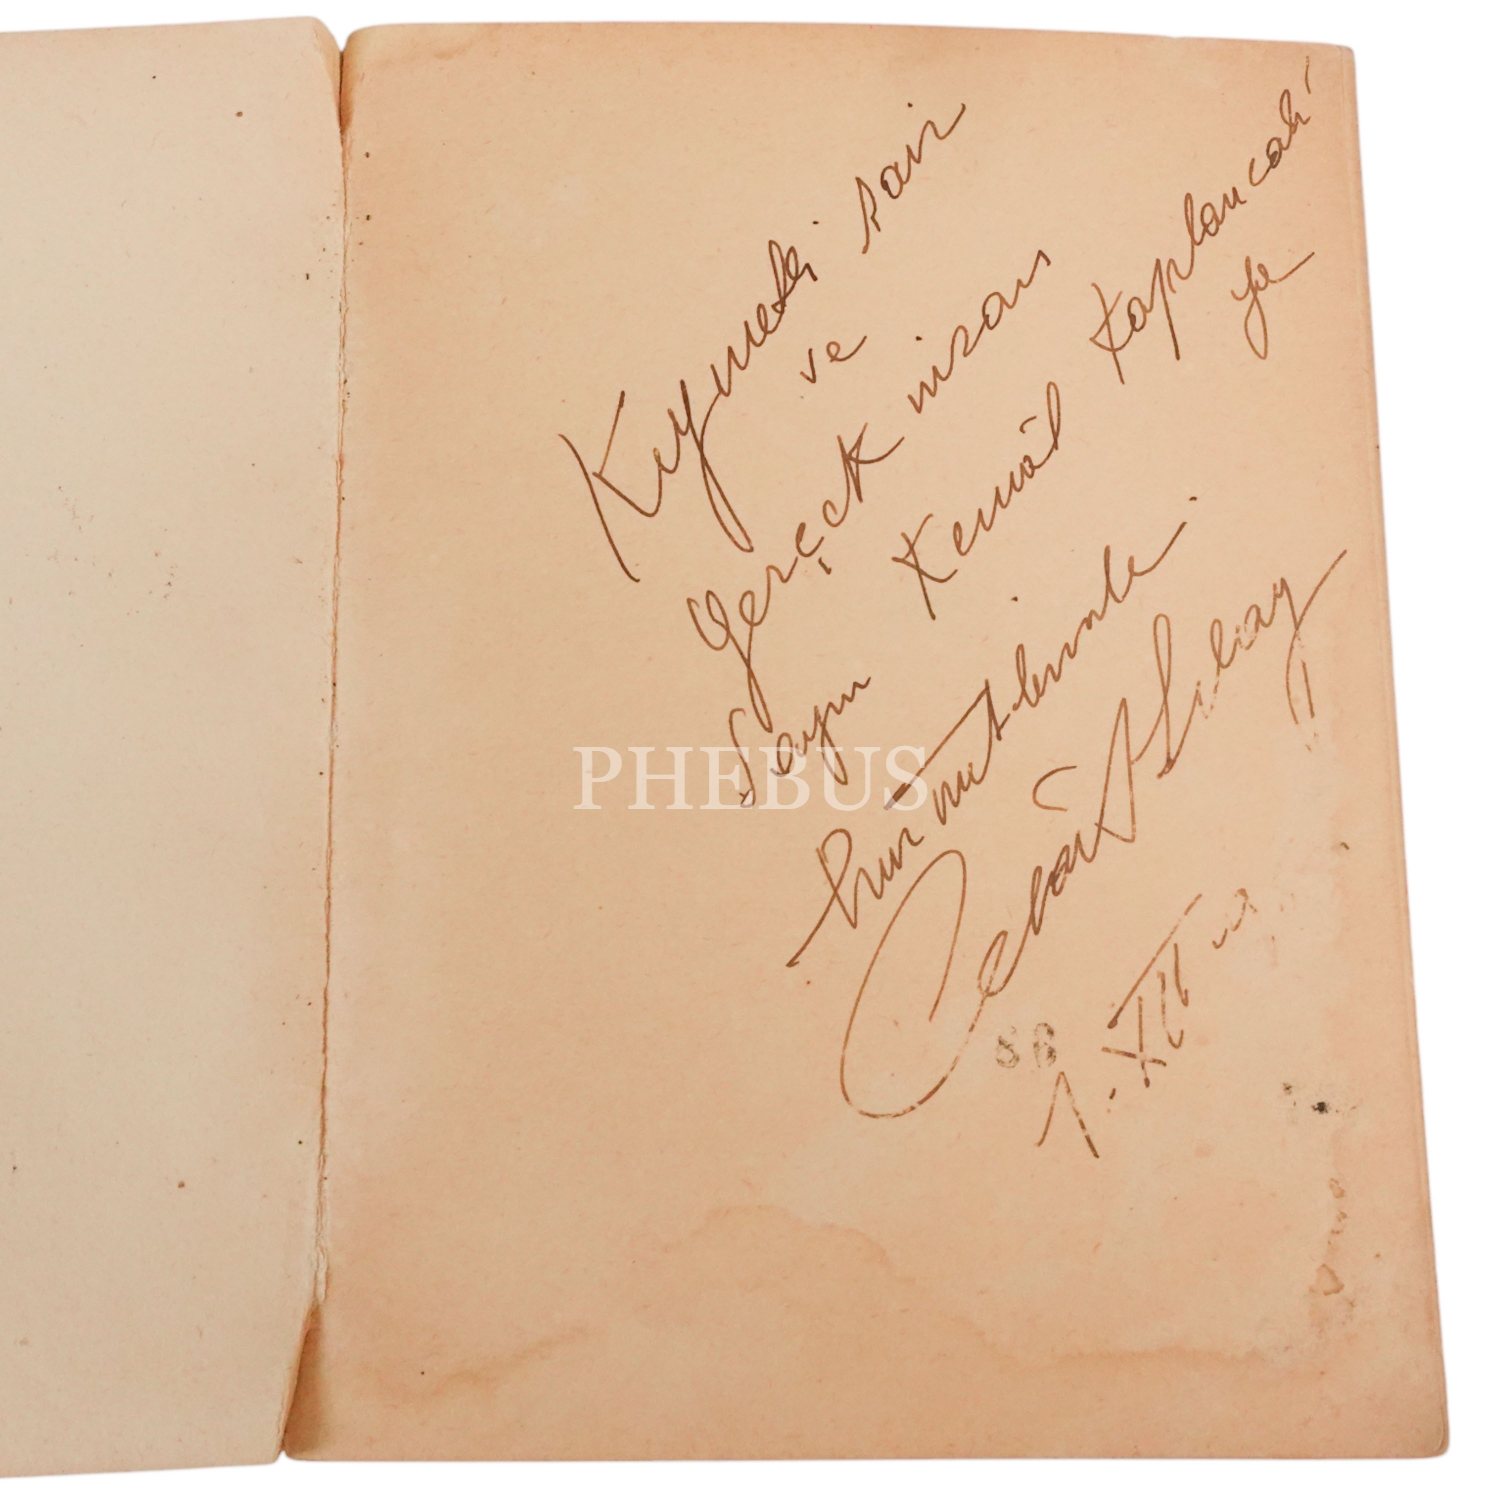 Kıymetli şair
ve
gerçek insan
Sayın Kemâl Kaplancalı
ya
hürmetlerimle.
Celâl Sılay
1.XII
SB
PHEBUS